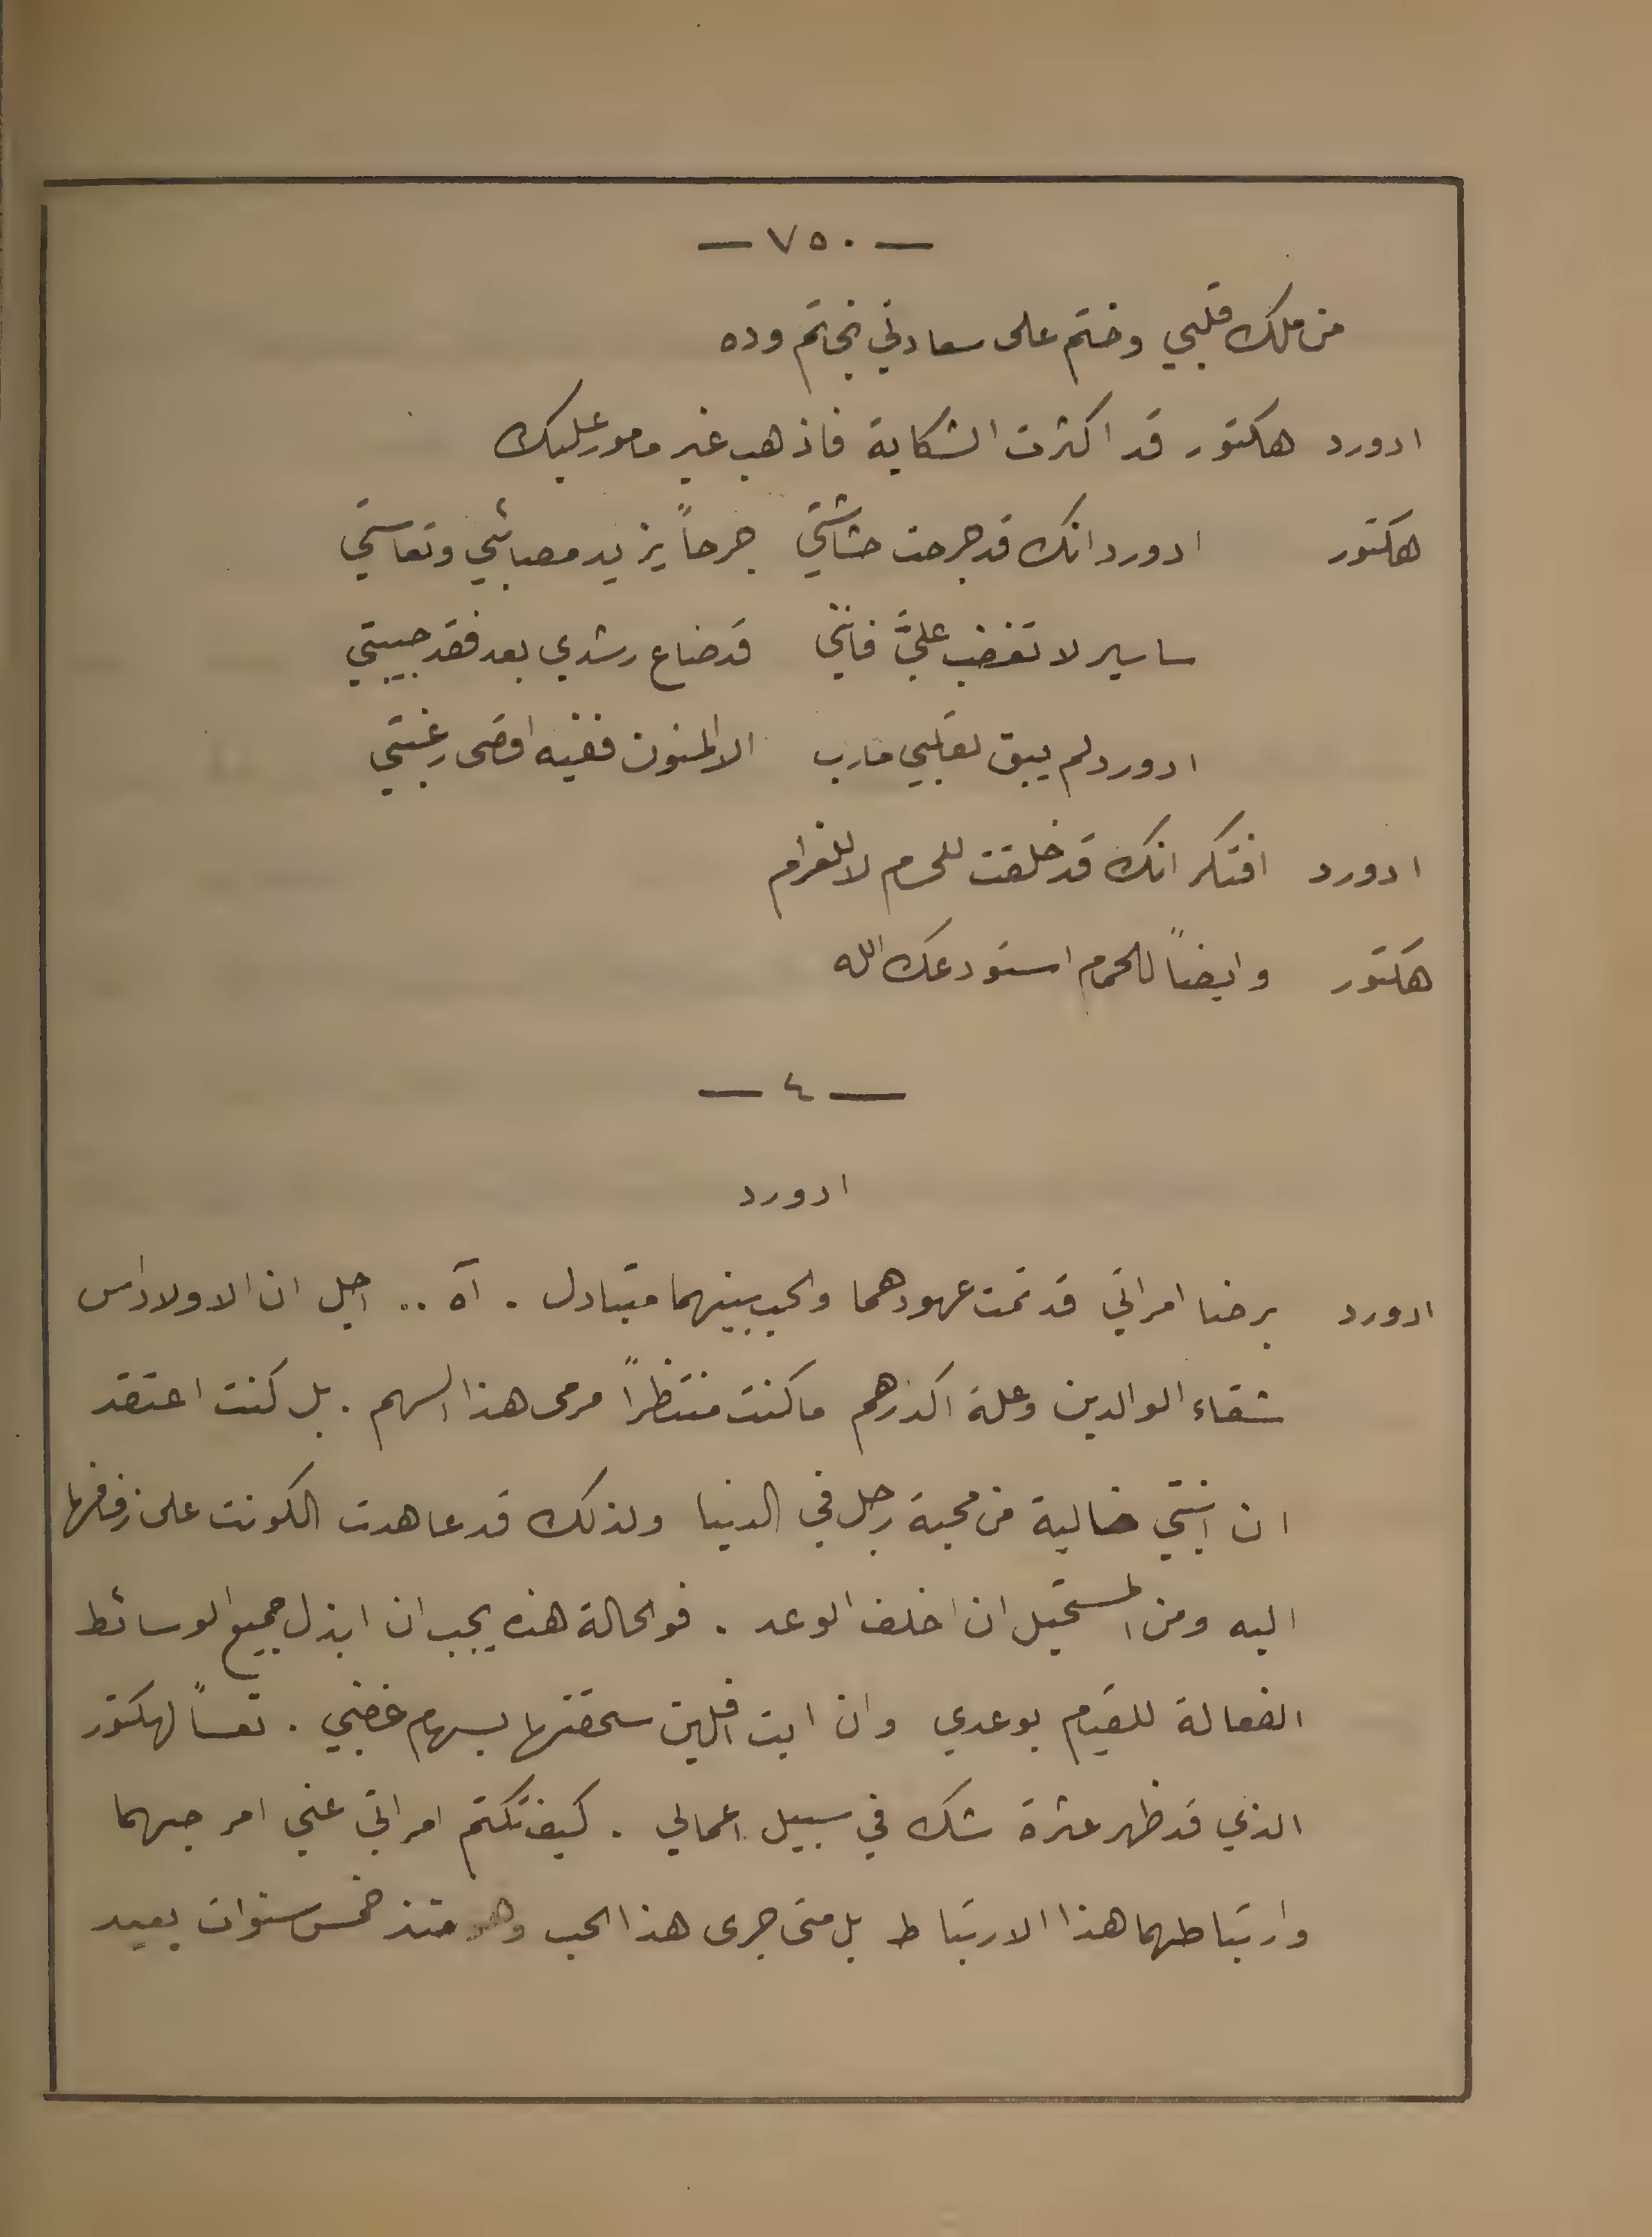 — ٧٥٠ —
من ملك قلبي وختم على سعادتي بخاتم وده
ادورد هكتور قد اكثرت الشكاية فاذهب غير مامور عليك
هكتور ادورد انك قد جرحت حشاشتي جرحاً يزيد مصائبي وتعاستي
ساسير لا تغضب عليَّ فانني قد ضاع رشدي بعد فقد حبيبتي
ادورد لم يبق لقلبي مارب الا المنون ففيه اقضى رغبتي
ادورد افتكر انك قد خلقت للحرم لا للغرام
هكتور وايضاً للحمام استودعك الله
— ٤ —
ادورد
ادورد برضا امراتي قد تمت عهودهما والحب بينهما متبادل . آه .. اجل ان الاولاد اس
شقاء الوالدين وعلة اكدرهم ما كنت منتظراً مرمى هذا السهم . بل كنت اعتقد
ان ابنتي خالية من محبة رجل في الدنيا ولذلك قد عاهدت الكونت على زفافها
اليه ومن المستحيل ان اخلف الوعد . فوالحالة هذه يجب ان ابذل جميع الوسائط
الفعالة للقيام بوعدي وان ابت افلين سحقتها بسهام غضبي . تعساً لهكتور
الذي قد ظهر عثرة شك في سبيل اعمالي . كيف تكتم امراتي عني امر حبهما
وارتباطهما هذا الارتباط بل متى جرى هذا الحب وهو منذ خمس سنوات بعيد